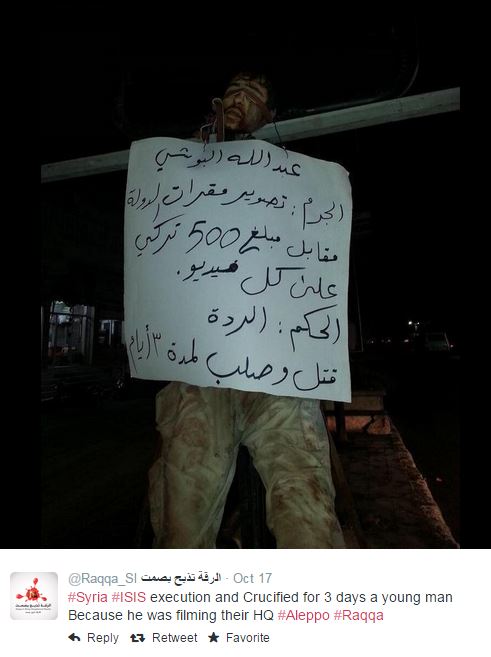 عبد الله البوشي
الجرم : تصوير مقرات الدولة
مقابل مبلغ 500 تركي
على كل فيديو.
الحكم : الردة
قتل وصلب لمدة ٣ أيام
@Raqqa_Sl الرقة تذبح بصمت · Oct 17
#Syria #ISIS execution and Crucified for 3 days a young man
Because he was filming their HQ #Aleppo #Raqqa
Reply Retweet Favorite